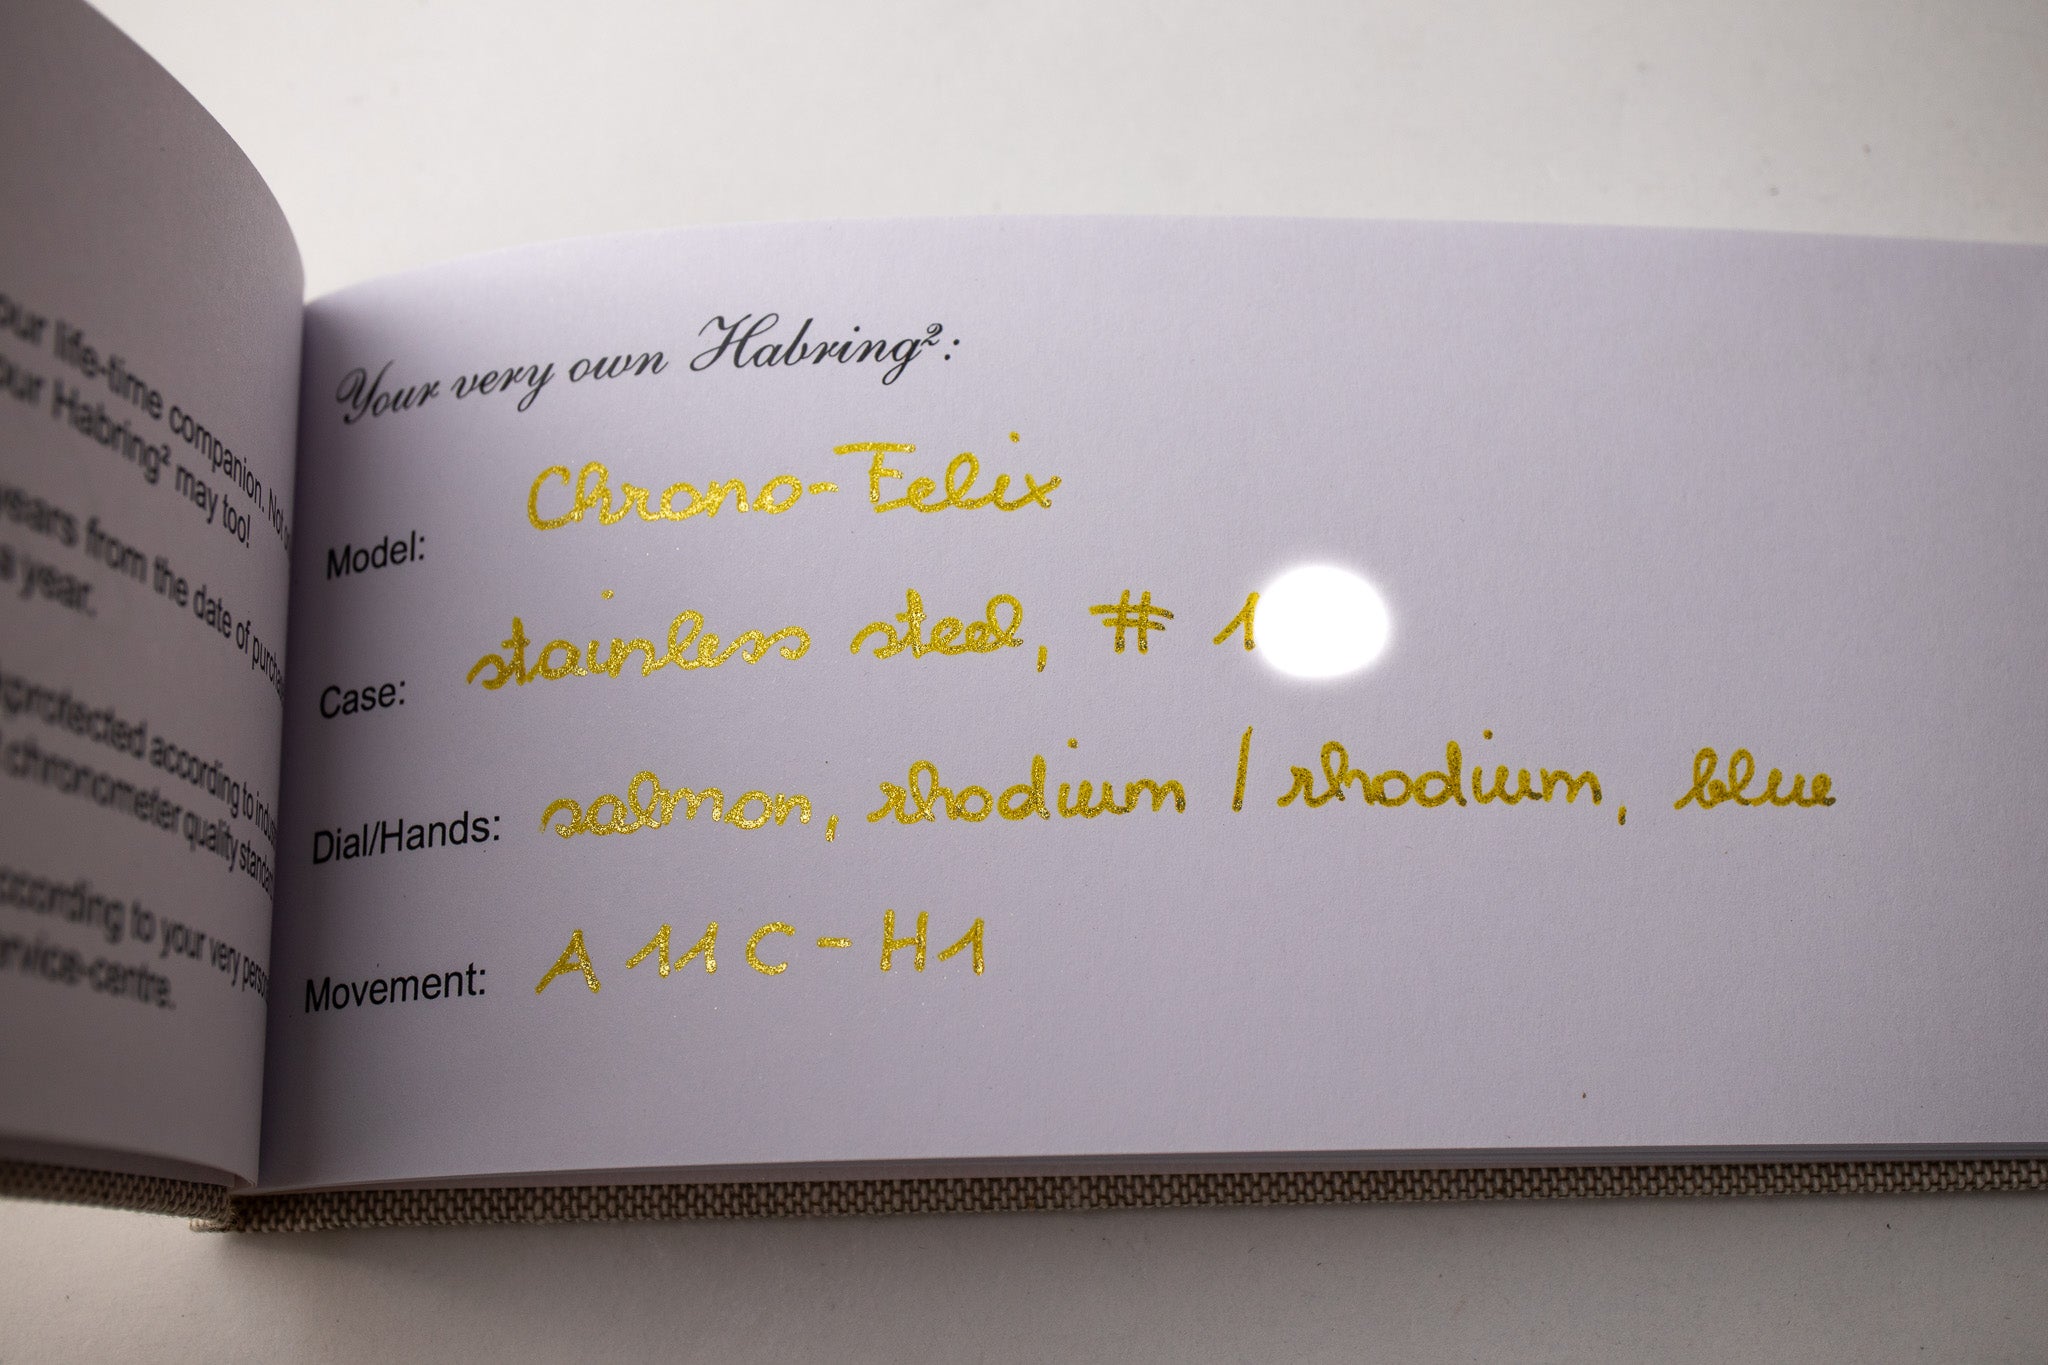 our life-time companion. Not
our Habring² may too!
years from the date of
a year.
protected according to
chronometer quality
according to your very
service-centre.
Your very own Habring²:
Model: Chrono-Felix
Case: stainless steel, # 1
Dial/Hands: salmon, rhodium / rhodium, blue
Movement: A11C-H1